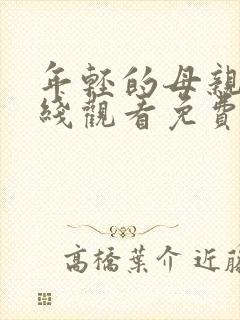 年輕的母親
綫觀看免費
高橋葉介 近藤